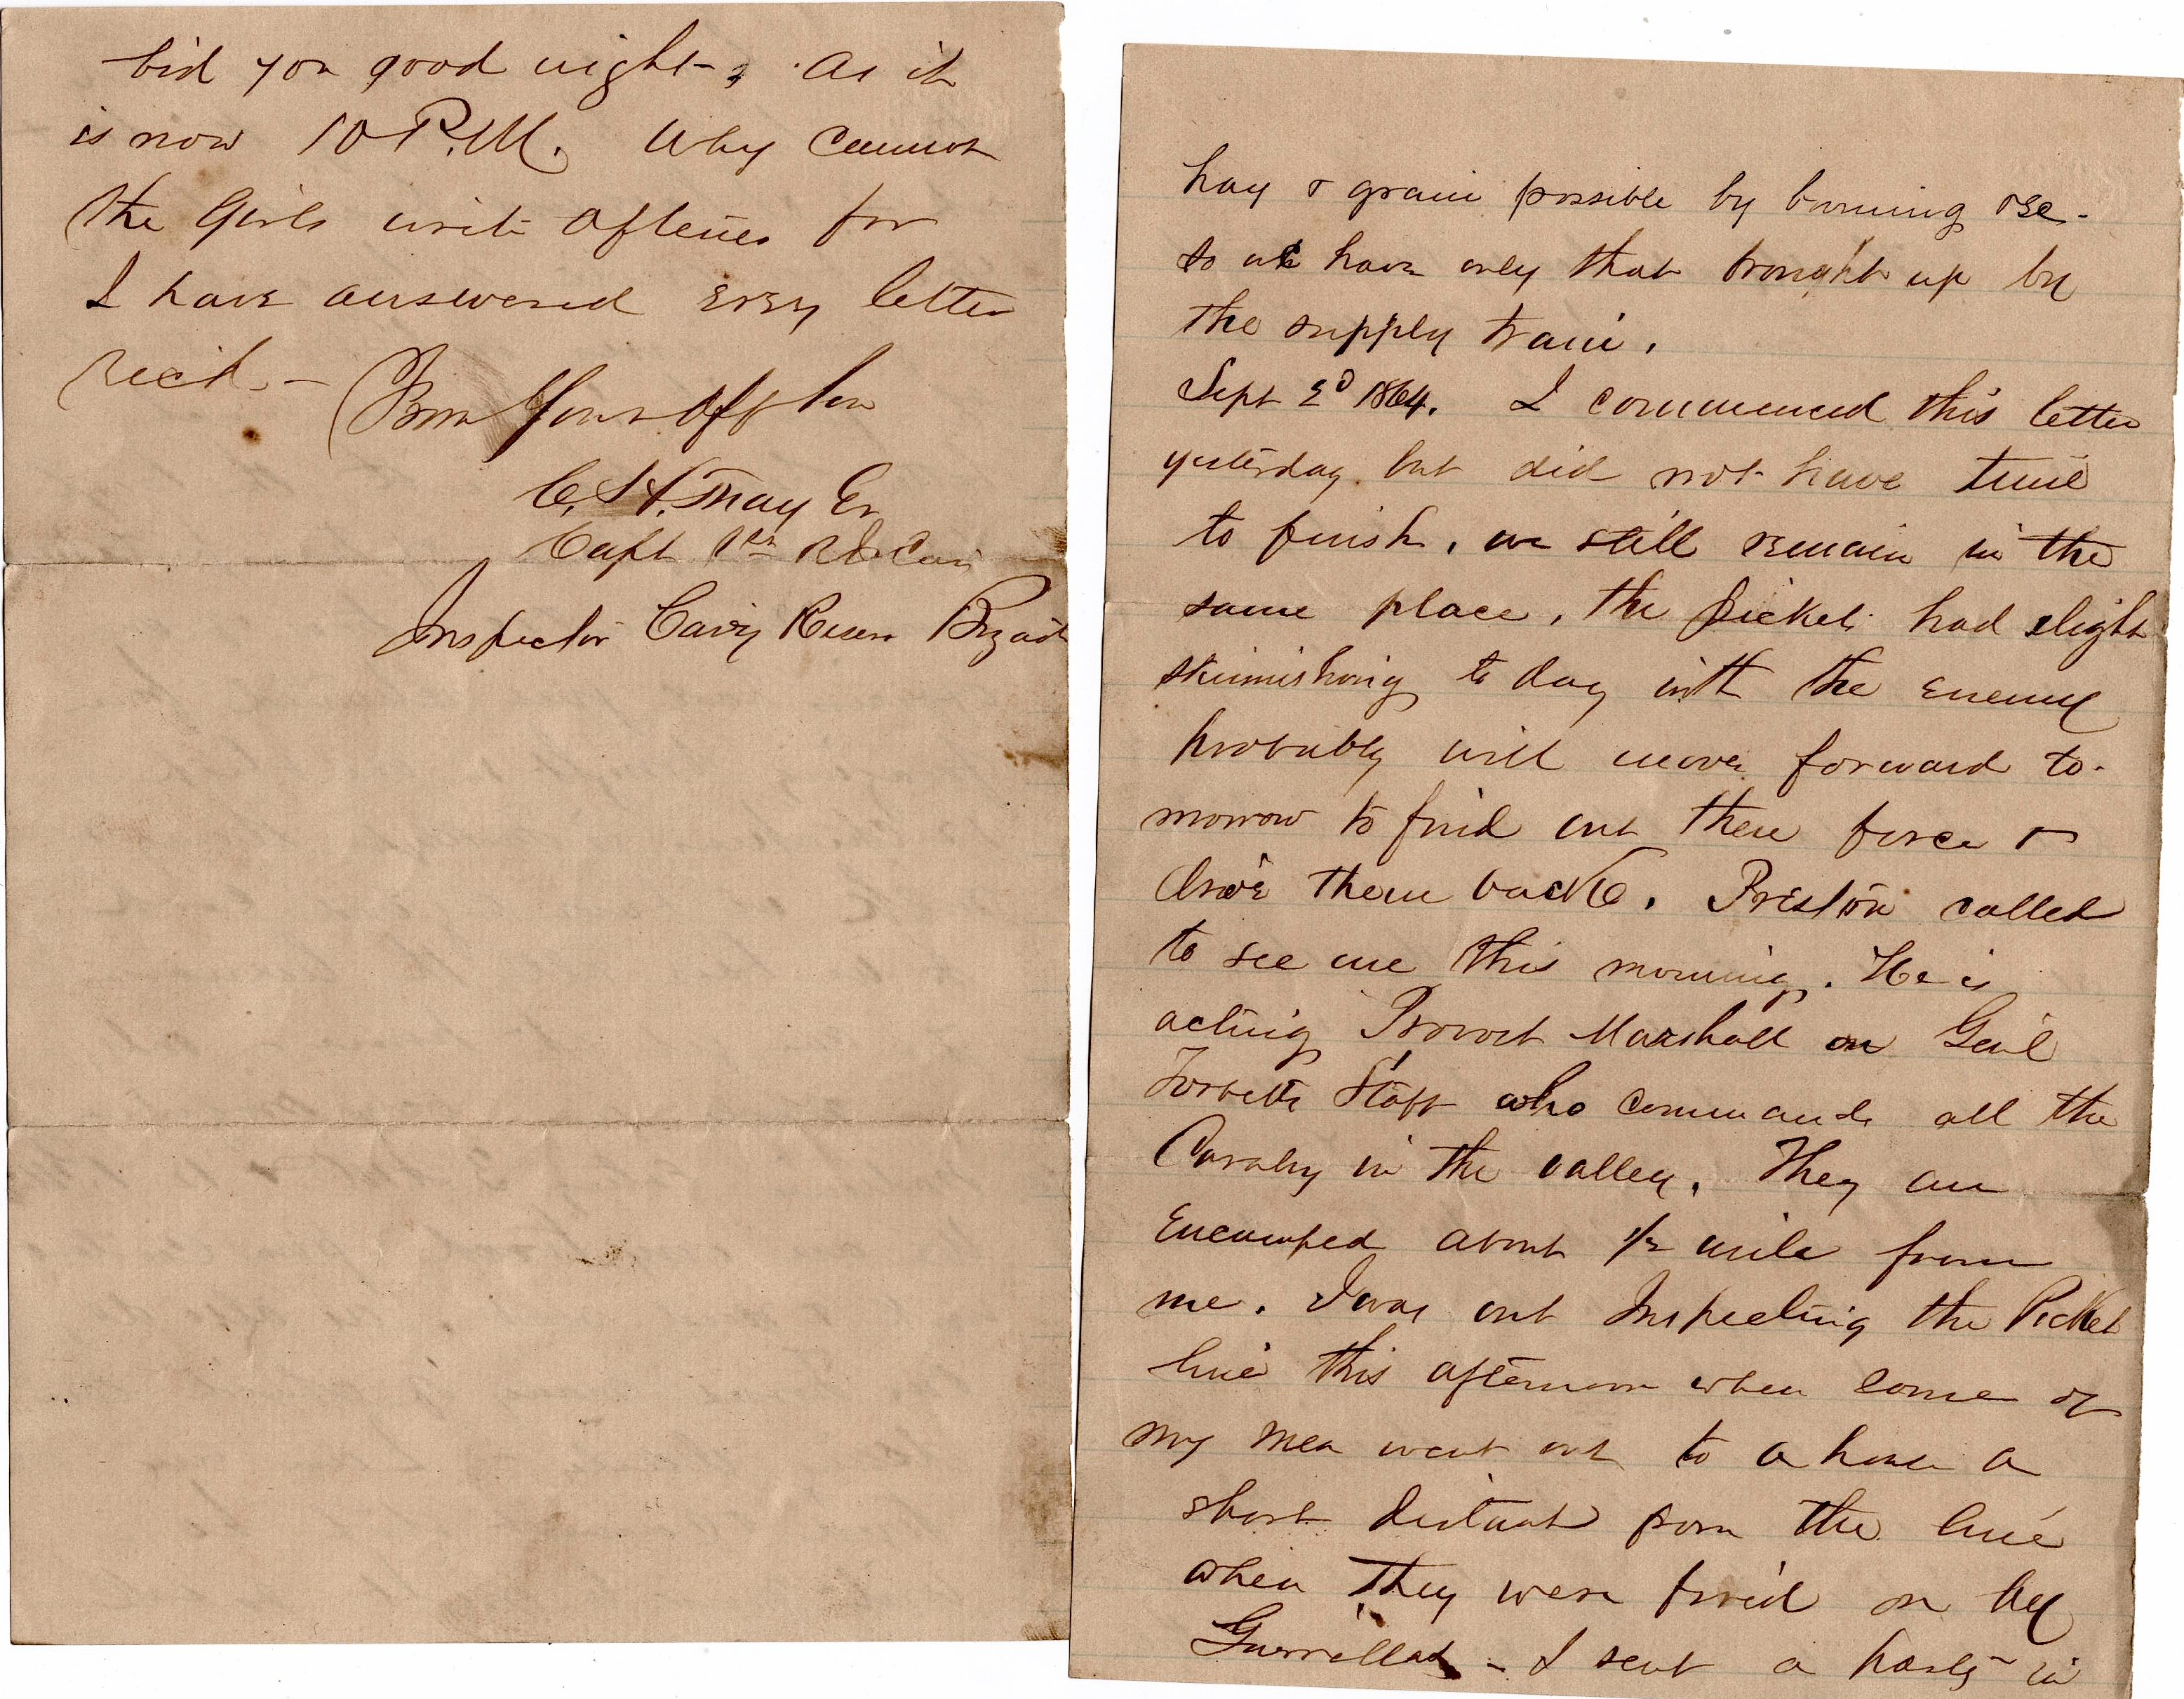 bid you good night, as it
is now 10 P.M. Why cannot
the Girls write oftener for
I have answered every letter
recd. –
From Your Aff Son
C. H. May
Capt 1st Cav
Inspector Cavy Reserv Brgad
hay & grain possible by burning &c.
so as have only that brought up by
the supply train.
Sept 2d 1864. I commenced this letter
yesterday but did not have time
to finish, we still remain in the
same place, the pickets had slight
skirmishing to day with the enemy
probably will move forward to-
morrow to find out there force &
drive them back. Preston called
to see me this morning. He is
acting Provost Marshall on Genl
Torbetts Staff who commands all the
Cavalry in the valley. They are
Encamped about 1/2 mile from
me. I was out Inspecting the Picket
line this afternoon when some of
my men went out to a house a
short distant from the line
when they were fired on by
Guerrillas – I sent a party in